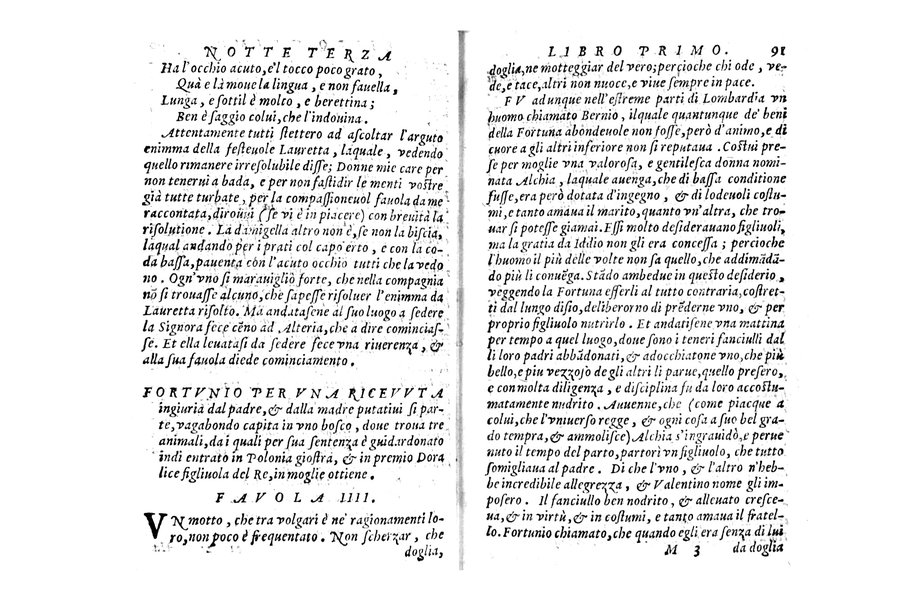 NOTTE TERZA
Ha l'occhio acuto, e'l tocco poco grato,
Quà e là moue la lingua, e non fauella,
Lunga, e sottil è molto, e berettina;
Ben è saggio colui, che l'indouina.
Attentamente tutti stettero ad ascoltar l'arguto
enimma della festeuole Lauretta, laquale, vedendo
quello rimanere irresolubile disse; Donne mie care per
non tenerui a bada, e per non fastidir le menti vostre
già tutte turbate, per la compassioneuol fauola da me
raccontata, dirouui (se vi è in piacere) con breuità la
risolutione. La damigella altro non è, se non la biscia,
laqual andando per i prati col capo erto, e con la co-
da bassa, pauenta con l'acuto occhio tutti che la vedo
no. Ogn'vno si marauigliò forte, che nella compagnia
nō si trouasse alcuno, che sapesse risoluer l'enimma da
Lauretta risolto. Ma andatasene al suo luogo a sedere
la Signora fece cēno ad Alteria, che a dire cominciaf-
se. Et ella leuatasi da sedere fece vna riuerenza, &
alla sua fauola diede cominciamento.
FORTVNIO PER VNA RICEVVTA
ingiuria dal padre, & dalla madre putatiui si par-
te, vagabondo capita in vno bosco, doue troua tre
animali, da i quali per sua sentenza è guidardonato
indi entrato in Polonia giostra, & in premio Dora
lice figliuola del Re, in moglie ottiene.
FAVOLA IIII.
VN motto, che tra volgari è ne' ragionamenti lo-
ro, non poco è frequentato. Non scherzar, che
doglia,
LIBRO PRIMO. 91
doglia, ne motteggiar del vero; percioche chi ode, ve-
de, e tace, altri non nuoce, e viue sempre in pace.
FV adunque nell'estreme parti di Lombardia vn
huomo chiamato Bernio, ilquale quantunque de' beni
della Fortuna abondeuole non fosse, però d'animo, e di
cuore a gli altri inferiore non si reputaua. Costui pre-
se per moglie vna valorosa, e gentilesca donna nomi-
nata Alchia, laquale auenga, che di bassa conditione
fusse, era però dotata d'ingegno, & di lodeuoli costu-
mi, e tanto amaua il marito, quanto vn'altra, che tro-
uar si potesse giamai. Essi molto desiderauano figliuoli,
ma la gratia da Idilio non gli era concessa; percioche
l'huomo il più delle volte non sa quello, che addimādā-
do più li conuēga. Stādo ambedue in questo desiderio,
veggendo la Fortuna esserli al tutto contraria, costret-
ti dal lungo disio, deliberorno di prēderne vno, & per
proprio figliuolo nutrirlo. Et andatisene vna mattina
per tempo a quel luogo, doue sono i teneri fanciulli dal
li loro padri abbādonati, & adocchiatone vno, che più
bello, e piu vezzoso de gli altri li parue, quello presero,
e con molta diligenza, e disciplina fu da loro accostu-
matamente nudrito. Auuenne, che (come piacque a
colui, che l'vniuerso regge, & ogni cosa a suo bel gra-
do tempra, & ammolisce) Alchia s'ingrauidò, e perue
nuto il tempo del parto, partorì vn figliuolo, che tutto
somigliaua al padre. Di che l'vno, & l'altro n'heb-
be incredibile allegrezza, & Valentino nome gli im-
posero. Il fanciullo ben nodrito, & alleuato cresce-
ua, & in virtù, & in costumi, e tanto amaua il fratel-
lo. Fortunio chiamato, che quando egli era senza di lui
M 3 da doglia